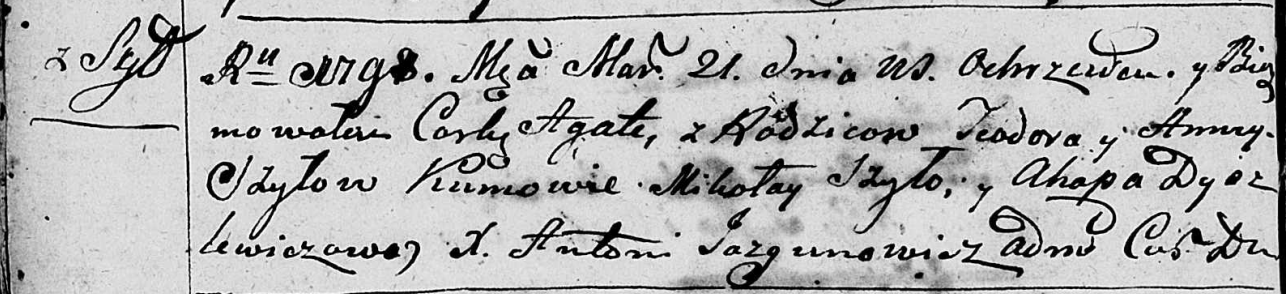 z Szył
Ru 1798. Mca Mar. 21. dnia US. Ochrzciłem. y Bież
mowałem Corkę Agatę, z Rodzicow Teodora y Anny.
Szyłow Kumowie. Mikołay Szyło, y Ahapa Dysz
lewiczowa, X. Antoni Jazgunowicz Adm